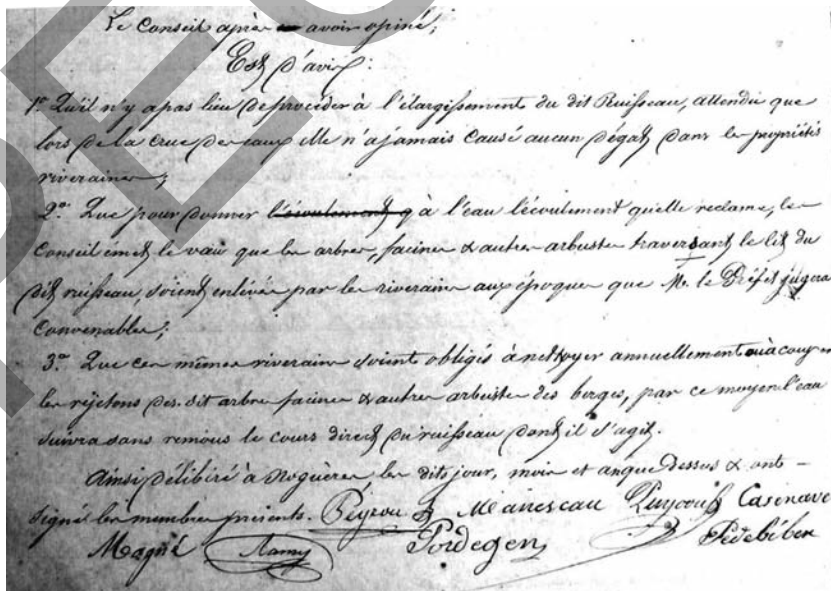 Le Conseil après avoir opiné;
Est d'avis:
1º Qu'il n'y a pas lieu de procéder à l'élargissement du dit Ruisseau, attendu que
lors de la crue des eaux elle n'a jamais causé aucun dégat dans les propriétés
riveraines;
2º. Que pour donner l'écoulement q à l'eau l'écoulement quelle reclame, les
Conseil émet le vœu que les arbres, racines & autres arbustes traversant le lit du
dit ruisseau soient enlevés par les riverains aux époques que M. le Préfet jugera
Convenables;
3º. Que ces mêmes riverains soient obligés à nettoyer annuellement ou à couper
les rejetons des. dit arbres racines & autres arbustes des berges, par ce moyen l'eau
suivra sans remous le cours direct du ruisseau dont il s'agit.
Ainsi délibéré à Noguères, les dits jour, mois et an que dessus & ont -
signé les membres présents. Peyrou Mairescau Casenave
Magné Lamy Pordegen Pédebiben